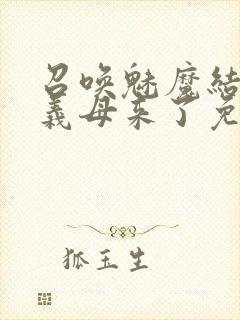 召唤魅魔结
义母来了免
狐玉生